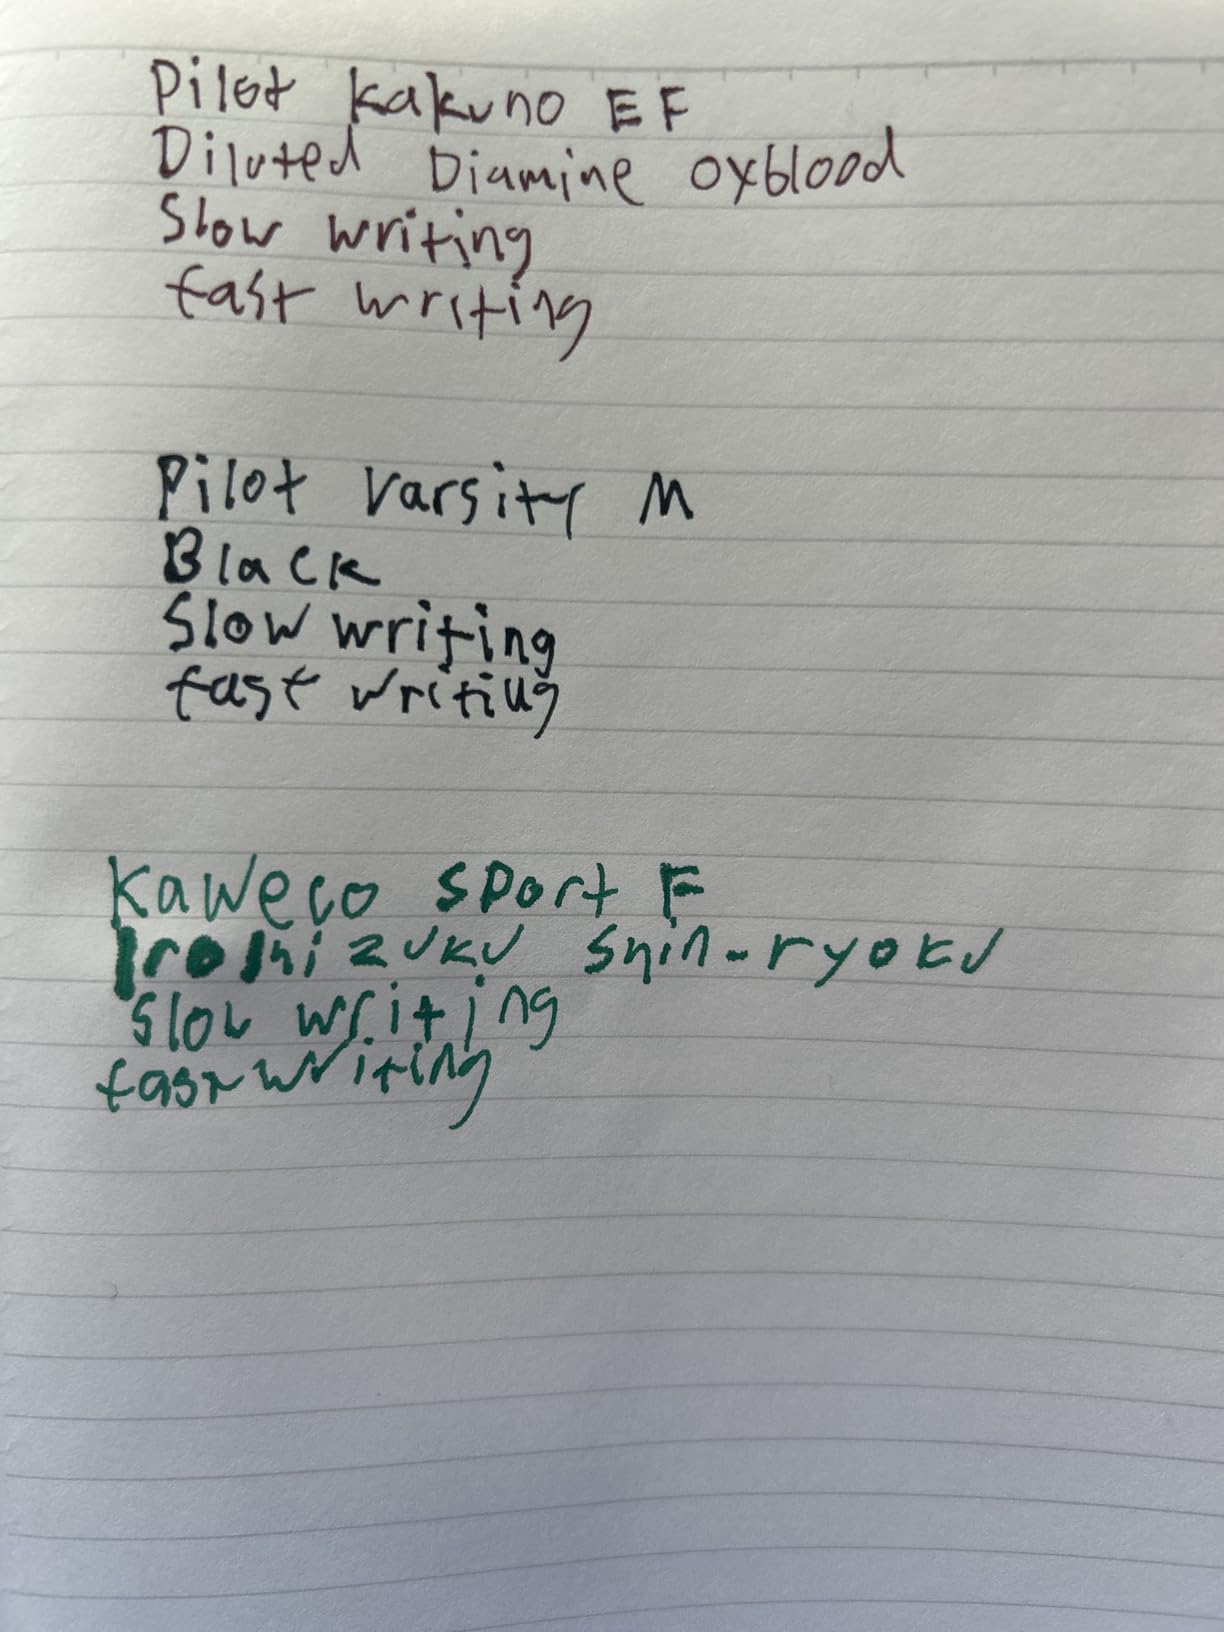 Pilot Kakuno EF
Diluted Diamine oxblood
Slow writing
fast writing
Pilot Varsity M
Black
Slow writing
fast writing
Kaweco Sport F
Iroshizuku Shin-ryoku
Slow writing
fast writing